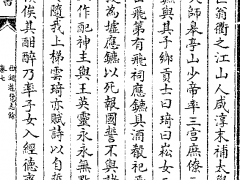 翁衢之江山人咸淳末補太
大師皋亭山少帝率三宮庶僚
與其子鄉貢士曰琦曰崧女
飛第有飛祠應鑣具酒殽祀
為墟應鑣以死報國誓不與
作配神主與王英靈永永無
隨我上梯雲琦亦賦詩以自
俟其酣醉乃率子女入經德